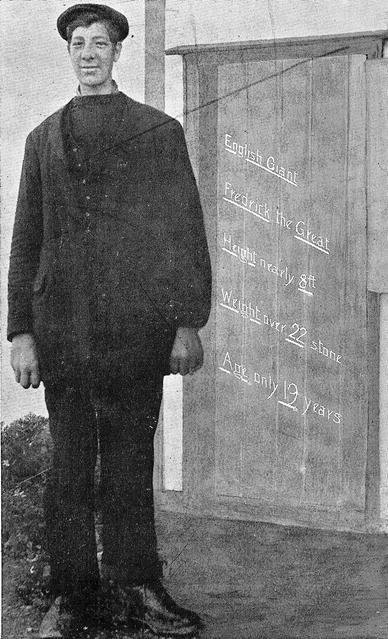 English Giant
Fredrick the Great
Height nearly 8ft
Weight over 22 stone
Age only 19 years